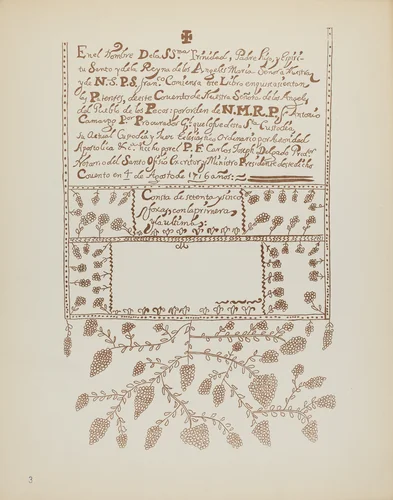 En el Nombre De la SSma Trinidad, Padre Hijo, y Espiri-
tu Santo y de la Reyna de los Angeles Maria Señora Nuestra
y de N.S.P.S. Franco Comienza este Libro en que se asientan
las Patentes, de este Convento de Nuestra Señora de los Angeles
del Pueblo de los Pecos: por orden de N.M.R.P. Fr. Antonio
Camargo Por Procurador Gl que fue de esta Sta Custodia
su Actual Custodio y Juez Eclesiastico Ordinario por Autoridad
Apostolica &c. Hecho por el P. F. Carlos Joseph Delgado Predor
Notario del Santo Offio Escritor y Ministro Presidente de este dicho
Convento en 4 de Agosto de 1716 años:
Consta de setenta y sinco
fojas, con la primera
y la ultima
3